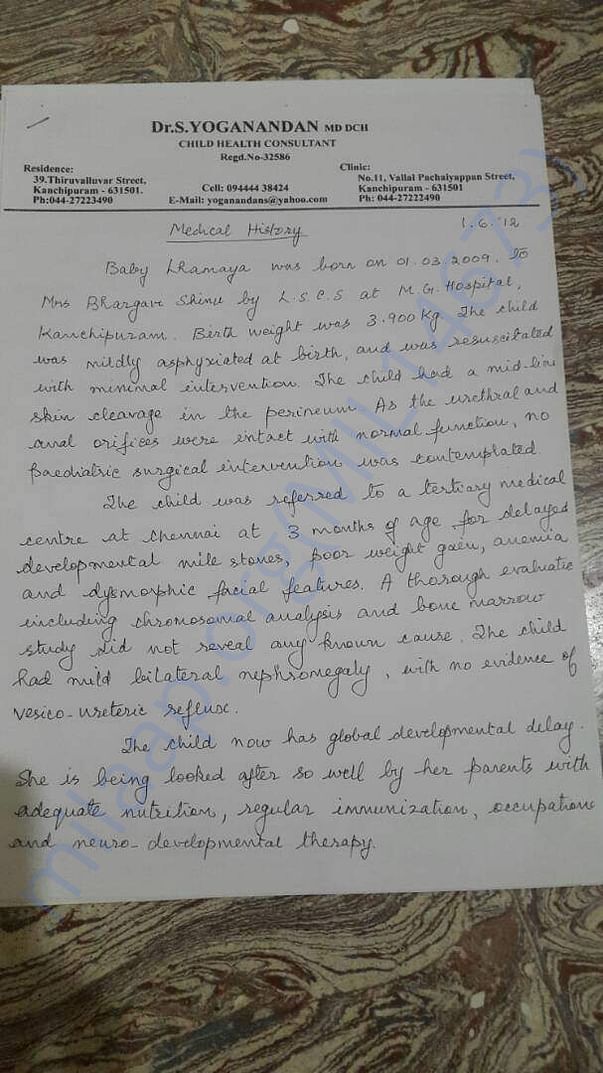 Dr.S.YOGANANDAN MD DCH
CHILD HEALTH CONSULTANT
Regd.No-32586
Residence:
39.Thiruvalluvar Street,
Kanchipuram - 631501.
Ph:044-27223490
Cell: 094444 38424
E-Mail: yoganandans@yahoo.com
Clinic:
No.11, Vallal Pachaiyappan Street,
Kanchipuram - 631501
Ph: 044-27222490
Medical History
1.6.'12
Baby Lhamaya was born on 01.03.2009. To
Mrs Bhargavi Shinu by L.S.C.S at M.G.Hospital,
Kanchipuram. Birth weight was 3.900 Kg. The child
was mildly asphyxiated at birth, and was resuscitated
with minimal intervention. The child had a mid-line
skin cleavage in the perineum. As the urethral and
anal orifices were intact with normal function, no
paediatric surgical intervention was contemplated.
The child was referred to a tertiary medical
centre at Chennai at 3 months of age for delayed
developmental mile stones, poor weight gain, anemia
and dysmorphic facial features. A thorough evaluatio
including chromosomal analysis and bone marrow
study did not reveal any known cause. The child
had mild bilateral nephromegaly, with no evidence of
vesico-ureteric reflux.
The child now has global developmental delay.
She is being looked after so well by her parents with
adequate nutrition, regular immunization, occupation
and neuro-developmental therapy.
milaap.org(MIL114673)